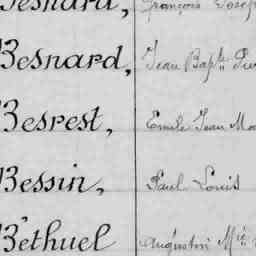 Besnard, François Josep
Besnard, Jean Bapte
Besrest, Emile Jean Ma
Bessin, Paul Louis
Béthuel Augustin Mie